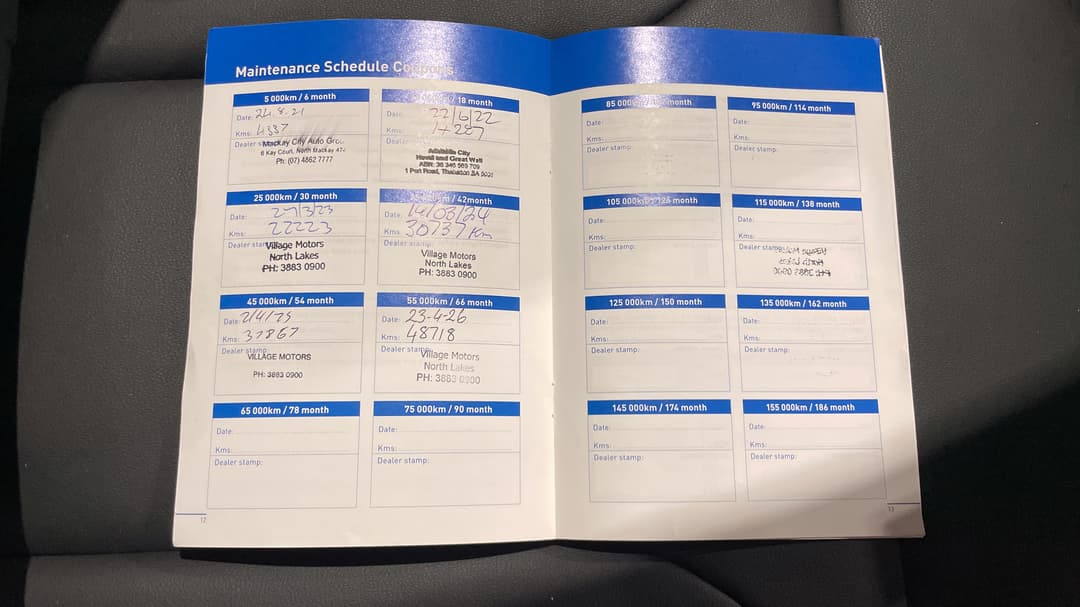 Maintenance Schedule Coupons
5 000km / 6 month
Date: 24.8.21
Kms: 4337
Dealer
Mackay City Auto Grou
6 Kay Court, North Mackay 474
Ph: (07) 4862 7777
/ 18 month
Date: 22/6/22
Kms:
Dealer
Adelaide City
Haval and Great Wall
ABN: 36 346 565 709
1 Port Road, Thebarton SA 5031
25 000km / 30 month
Date: 27/3/23
Kms: 22223
Dealer stamp
Village Motors
North Lakes
PH: 3883 0900
/ 42month
Date: 14/03/24
Kms: 30737 Km
Dealer stamp:
Village Motors
North Lakes
PH: 3883 0900
45 000km / 54 month
Date: 2/4/25
Kms: 37867
Dealer stamp:
VILLAGE MOTORS
PH: 3883 0900
55 000km / 66 month
Date: 23-4-26
Kms: 48718
Dealer stamp:
Village Motors
North Lakes
PH: 3883 0900
65 000km / 78 month
Date:
Kms:
Dealer stamp:
75 000km / 90 month
Date:
Kms:
Dealer stamp:
17
85 000 month
Date:
Kms:
Dealer stamp:
95 000km / 114 month
Date:
Kms:
Dealer stamp:
105 000km / 126 month
Date:
Kms:
Dealer stamp:
115 000km / 138 month
Date:
Kms:
Dealer stamp:
125 000km / 150 month
Date:
Kms:
Dealer stamp:
135 000km / 162 month
Date:
Kms:
Dealer stamp:
145 000km / 174 month
Date:
Kms:
Dealer stamp:
155 000km / 186 month
Date:
Kms:
Dealer stamp: